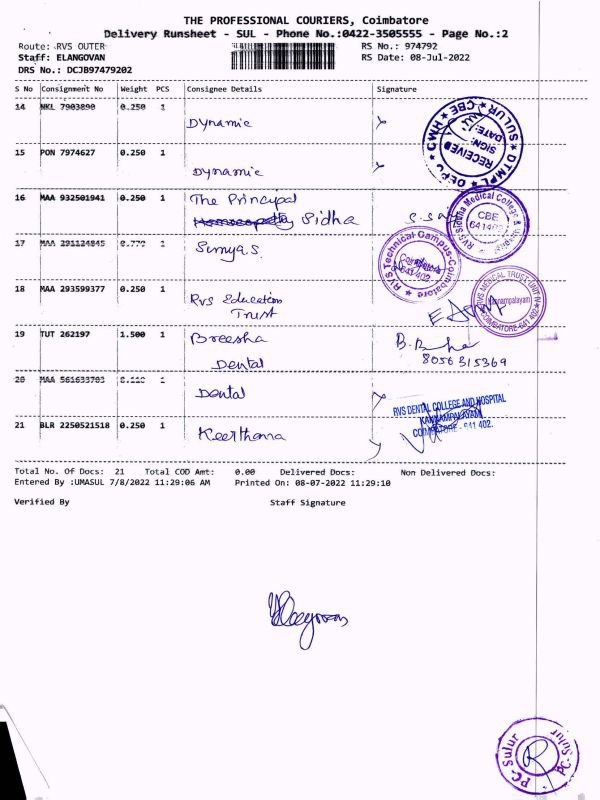 THE PROFESSIONAL COURIERS, Coimbatore
Delivery Runsheet - SUL - Phone No.:0422-3505555 - Page No.:2
Route: RVS OUTER RS No.: 974792
Staff: ELANGOVAN RS Date: 08-Jul-2022
DRS No.: DCJB97479202
S No Consignment No Weight PCS Consignee Details Signature
14 NKL 7903890 0.250 1 Dynamic
DTMPL * SULUR * CBE * CWH * DEPC
RECEIVED
SIGN:
DATE:
15 PON 7974627 0.250 1 Dynamic
16 MAA 932501941 0.250 1 The Principal
Sidha
RVS Siddha Medical College &
CBE
17 MAA 291124845 1 Sunya.S
RVS Technical Campus-Coimbatore
Coimbatore
641 402
18 MAA 293599377 0.250 1 RVS Education
Trust
RVS MEDICAL TRUST UNIT-IV
Kannampalayam
COIMBATORE-641 402
19 TUT 262197 1.500 1 Breesha
Dental
8056315369
20 MAA 561633703 1 Dental
RVS DENTAL COLLEGE AND HOSPITAL
KANNAMPALAYAM
COIMBATORE - 641 402.
21 BLR 2250521518 0.250 1 Keerthana
Total No. Of Docs: 21 Total COD Amt: 0.00 Delivered Docs: Non Delivered Docs:
Entered By :UMASUL 7/8/2022 11:29:06 AM Printed On: 08-07-2022 11:29:10
Verified By Staff Signature
PC-Sulur
PC-Sulur